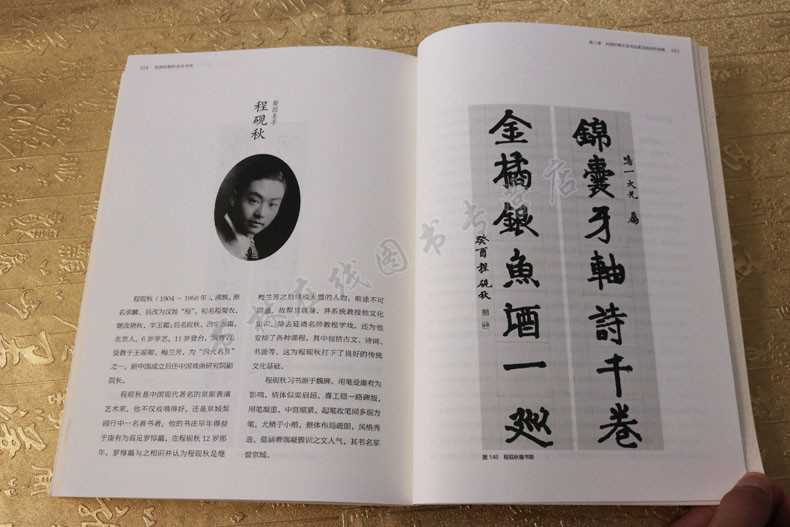 民国时期的北京书风
梨园圣手
程砚秋
程砚秋（1904－1958年），满族，原
名承麟，后改为汉姓“程”，初名程菊侬，
继改艳秋，字玉霜；后名砚秋，改字御霜，
北京人，6岁学艺，11岁登台，
受教于王瑶卿、梅兰芳，为“四大名旦”
之一。新中国成立后任中国戏曲研究院副
院长。
程砚秋是中国现代著名的京剧表演
艺术家，他不仅戏唱得好，还是京城梨
园行中一名善书者，他的书法早年得益
于康有为高足罗惇曧，在程砚秋12岁那
年，罗惇曧与之相识并认为程砚秋是继
梅兰芳之后将成大器的人物，前途不可
限量，故帮其赎身，并系统教授他文化
知识，除去延请名师教程学戏，还为他
安排了各种课程，其中包括古文、诗词、
书画等，这为程砚秋打下了良好的传统
文化基础。
程砚秋习书源于魏碑，用笔受康有为
影响，结体似梁启超，喜工稳一路碑版，
用笔凝重，中宫缩紧，起笔收笔间多现方
笔，尤精于小楷，整体布局疏朗，风格秀
逸，蕴涵着端凝雅训之文人气，其书名享
誉京城。
錦囊牙軸詩千卷
鳴一大兄 屬
金橘銀魚酒一巡
癸酉 程砚秋
图 140 程砚秋楷书联
在线图书专营店